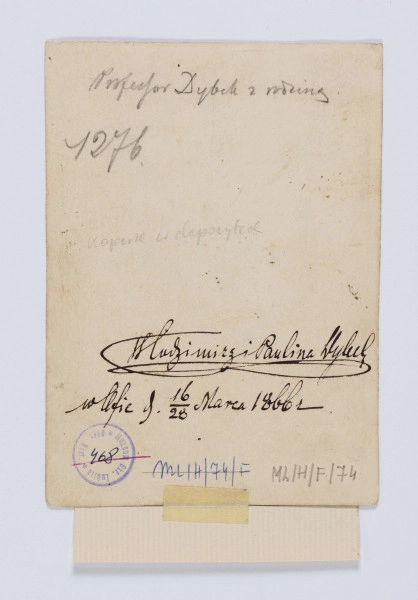 Professor Dybek z rodziną
1276.
w depozycie
Włodzimierz i Paulina Dybek
w Ufie d. 16/28 Marca 1866 r.
468
ML/H/74/F
ML/H/F/74